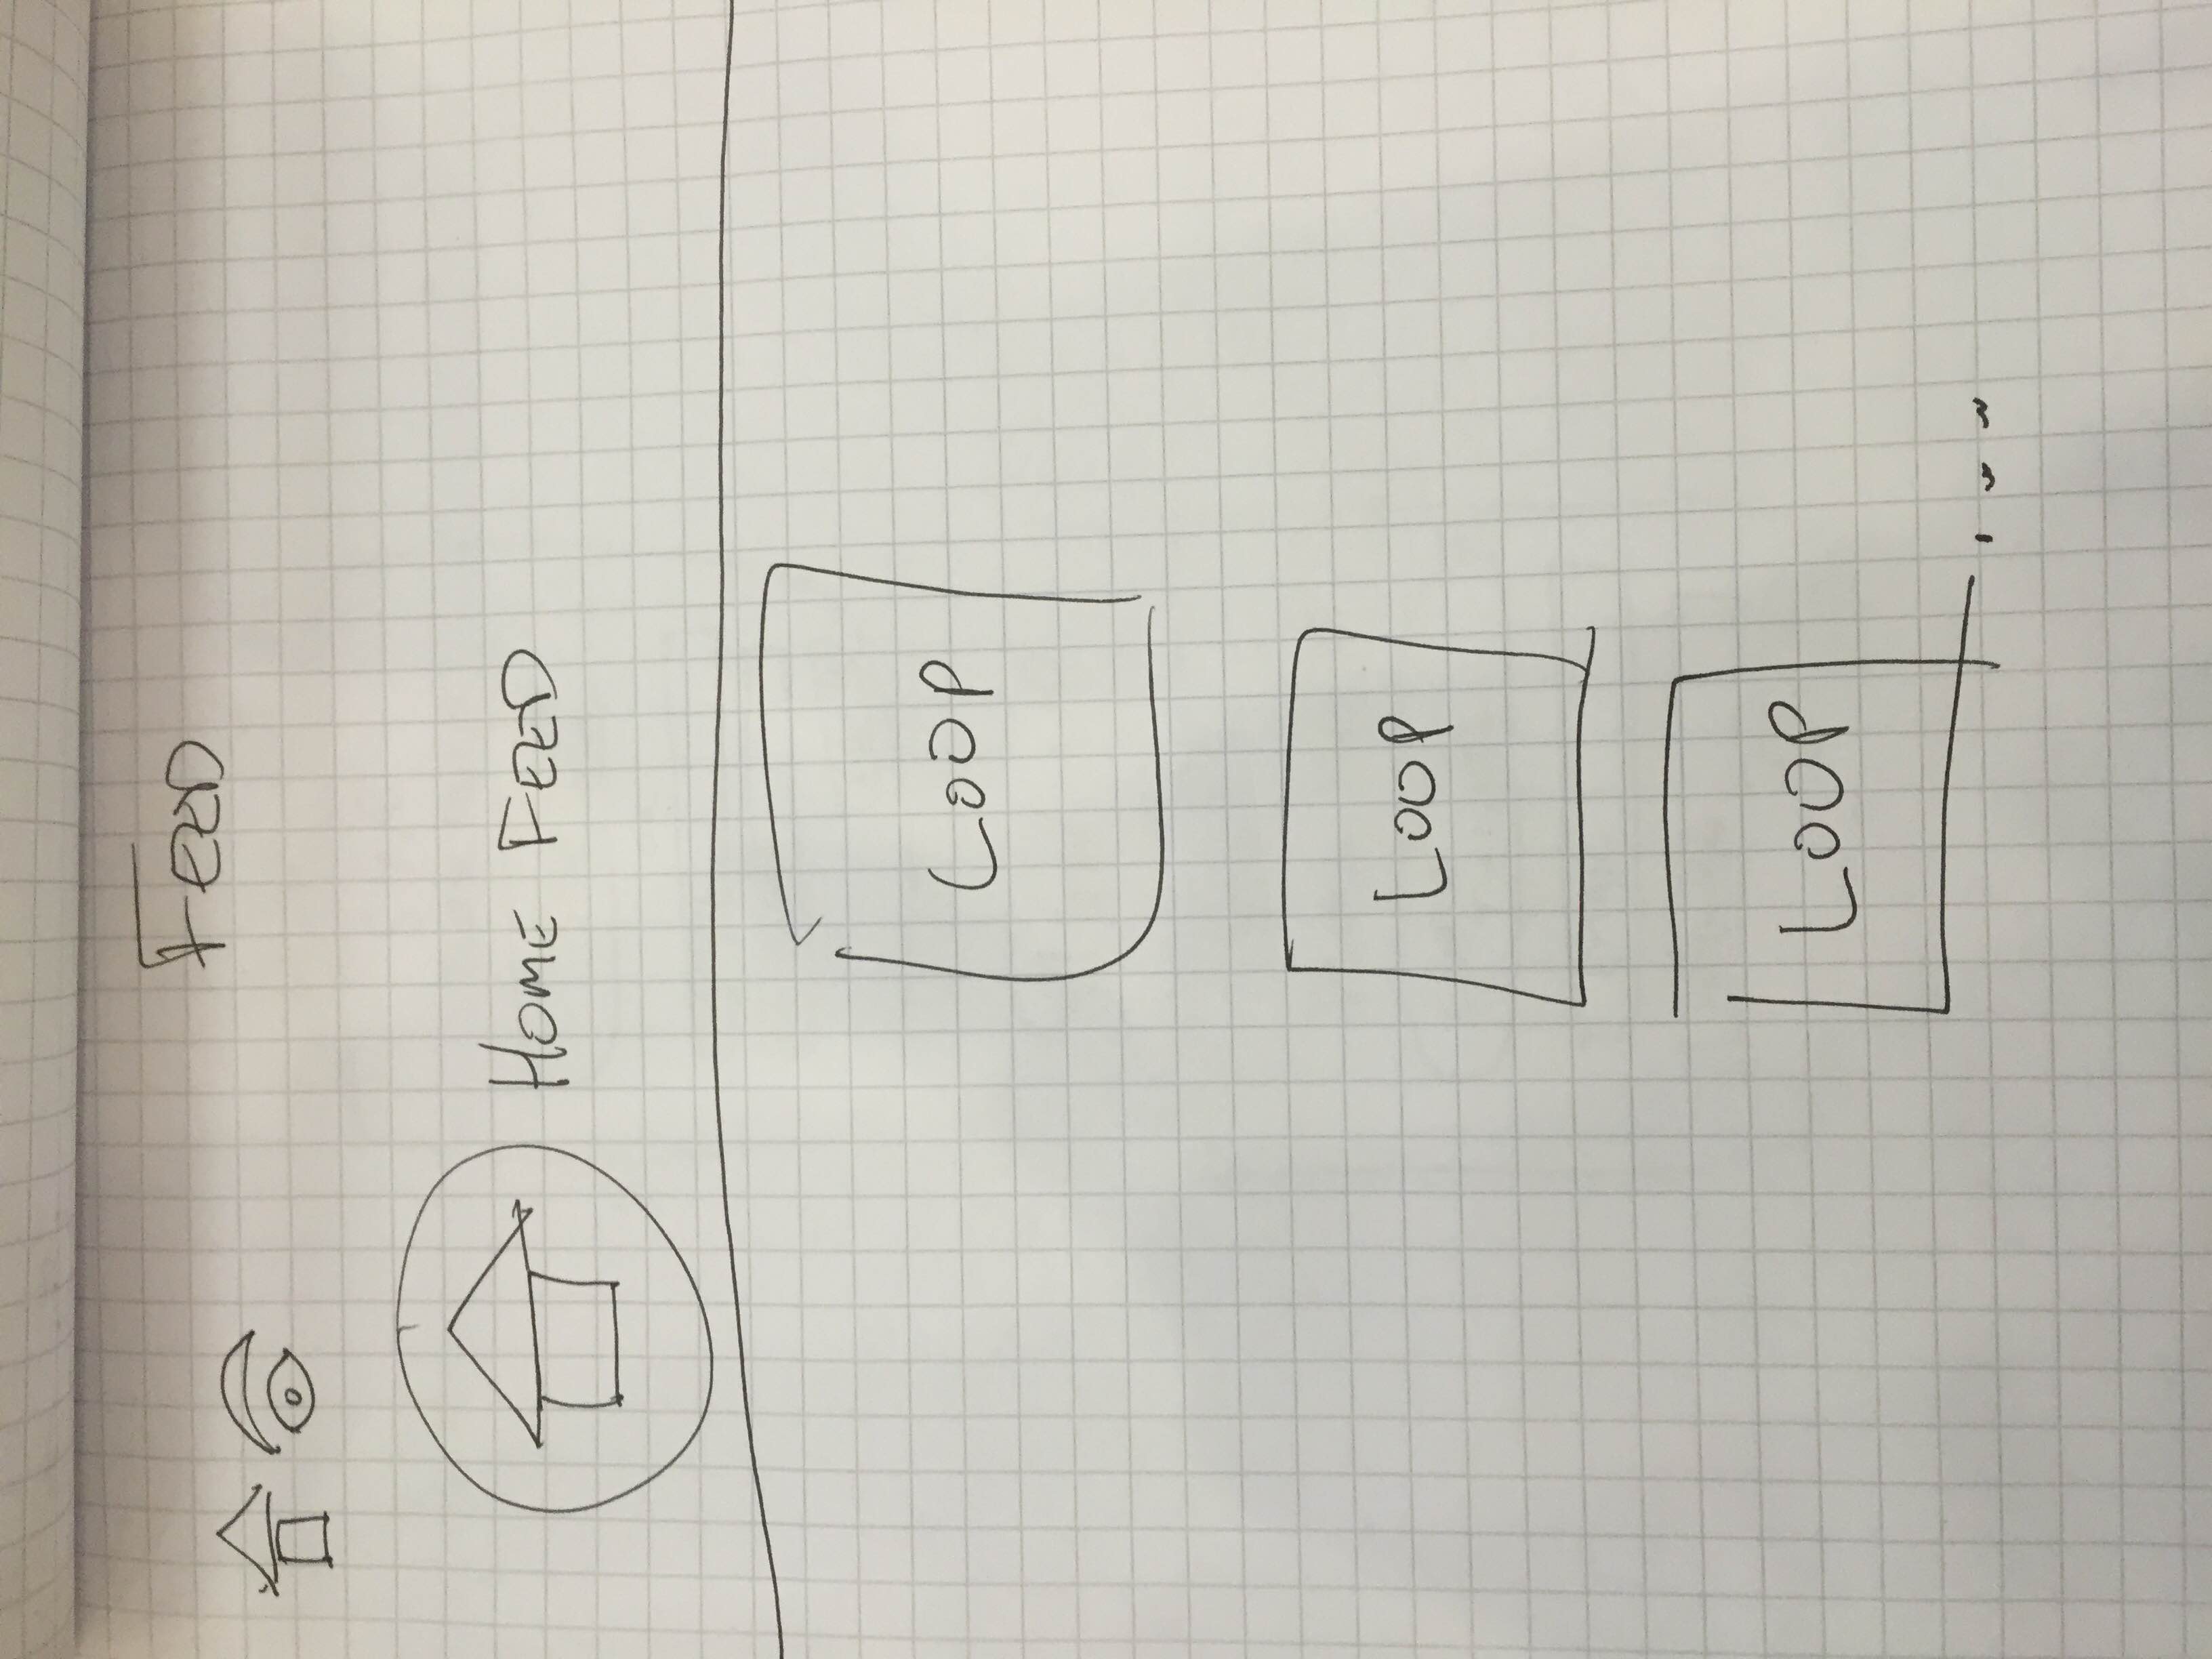 FEED
HOME FEED
LOOP
LOOP
LOOP
...